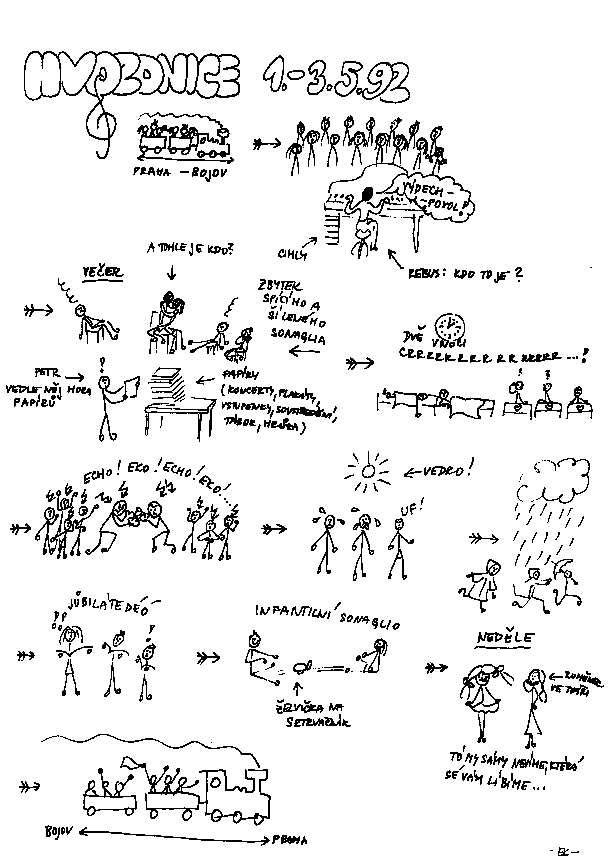 HVOZDNICE 1.-3.5.92
PRAHA - BOJOV
VÝDECH -
- POVOL!
CIHLY
REBUS: KDO TO JE?
VEČER
A TOHLE JE KDO?
ZBYTEK
SPÍCÍHO A
ŠÍLENÉHO
SONAGLIA
DVĚ V NOCI
CRRRRRRRRRRRRR...!
PETR
VEDLE NĚJ HORA
PAPÍRŮ
PAPÍRY
(KONCERTY, PLAKÁTY,
VSTUPENKY, SOUSTŘEDĚNÍ,
TÁBOR, HRAČKA)
ECHO! EKO! ECHO! EKO!...
VEDRO!
UF!
JUBILATE DEO
INFANTILNÍ SONAGLIO
ŽELVIČKA NA
SETRVAČNÍK
NEDĚLE
RUMĚNEC
VE TVÁŘI
TO MY SAMY NEVÍME, KTERÁ
SE VÁM LÍBÍME...
BOJOV
PRAHA